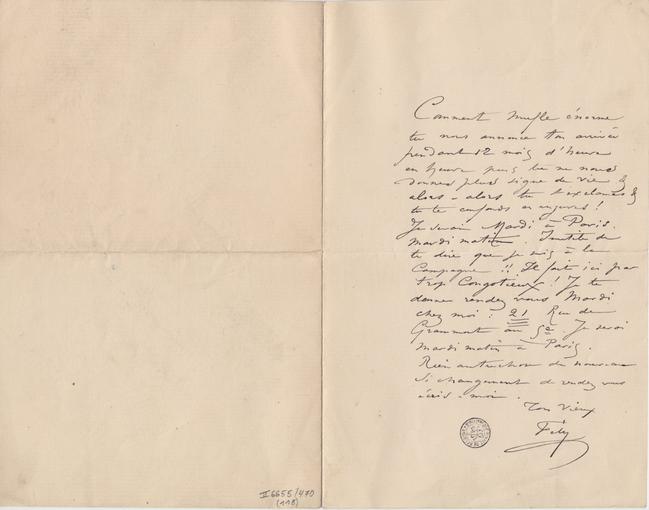 Comment Mufle énorme
tu nous annonce ton arrivée
pendant 12 mois d'heure
en heure puis tu ne nous
donnes plus signe de vie &
alors - alors tu t'exclames &
tu te confonds en injures!
Je serai Mardi à Paris.
Mardi matin. Inutile de
te dire que je suis à la
Campagne !! Il fait ici par
trop Congotieux! Je te
donne rendez vous Mardi
chez moi : 21 Rue de
Grammont au 5e. Je serai
Mardi matin à Paris.
Rien autrement de nouveau
Si changement de rendez vous
écris-moi.
Ton vieux
Fély
II 6655/470
(118)